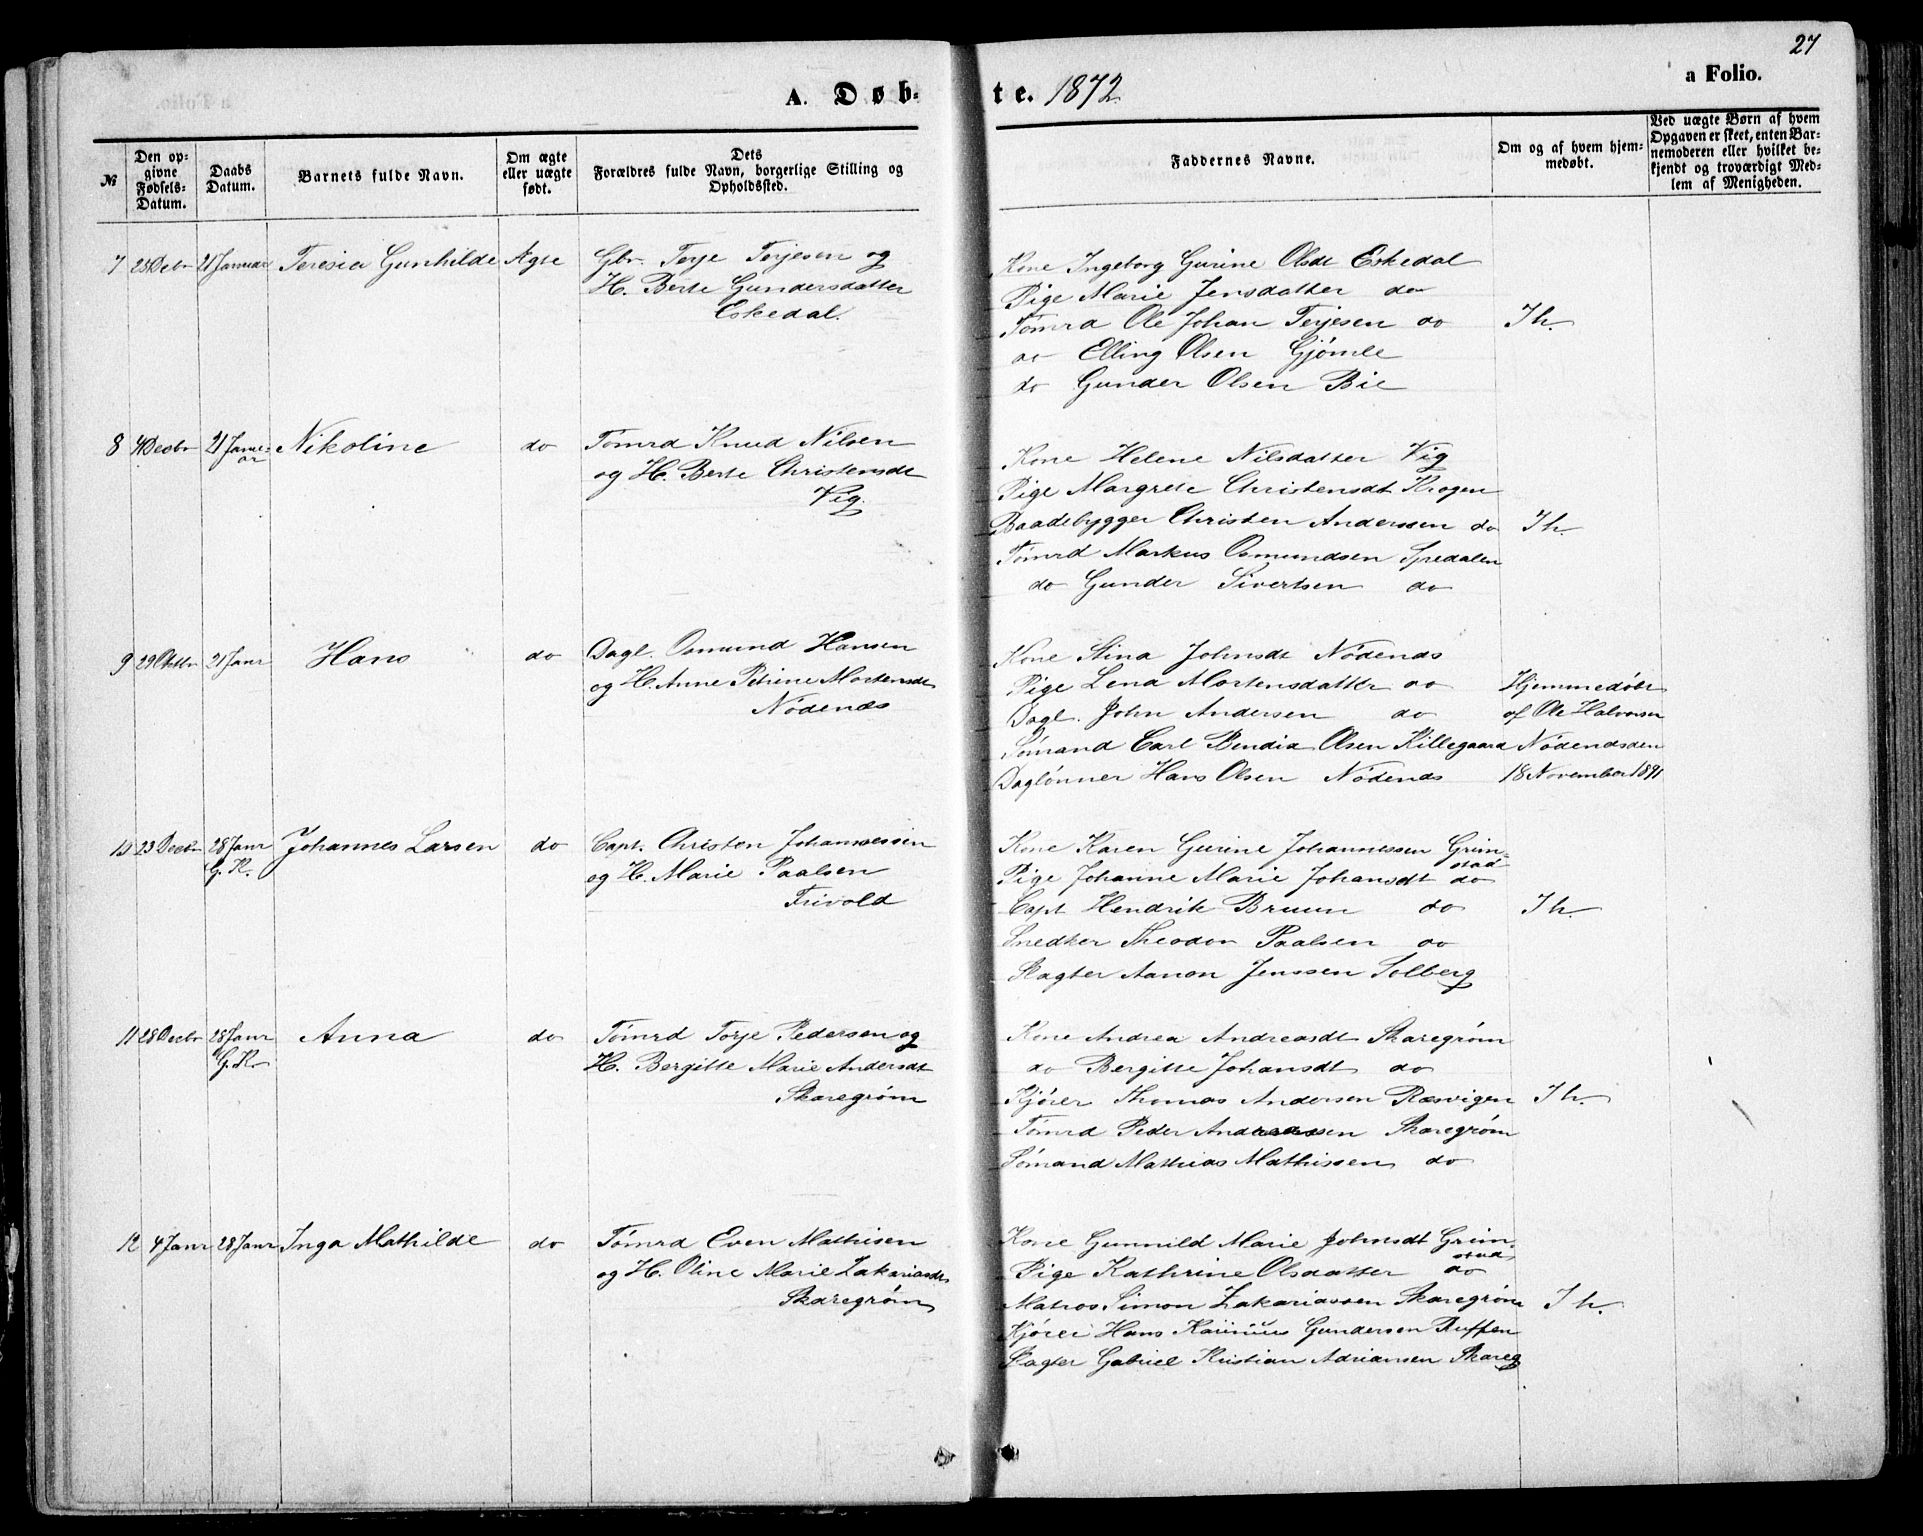 27
a Folio.
A. Døb-
te. 1872
№
Den op-
givne
Fødsels-
Datum.
Daabs
Datum.
Barnets fulde Navn.
Om ægte
eller uægte
født.
Dets
Forældres fulde Navn, borgerlige Stilling og
Opholdssted.
Faddernes Navne.
Om og af hvem hjem-
medøbt.
Ved uægte Børn af hvem
Opgaven er skeet, enten Bar-
nemoderen eller hvilket be-
kjendt og troværdigt Med-
lem af Menigheden.
7 Debr 21 Januar Teresia Gunhilde Ægte
Gbr. Terje Terjesen og
H. Berte Gundersdatter
Eskedal.
Kone Ingeborg Gurine Olsdt Eskedal
Pige Marie Jensdatter do
Tømrd Ole Johan Terjesen do
do Elling Olsen Gjømle
do Gunder Olsen Bie
Ih.
8 Decbr 21 Janu-
ar
Nikoline do
Tømrd Knud Nilsen
og H. Berte Christensdt
Vig.
Kone Helene Nilsdatter Vig
Pige Margrete Christensdt Krogen
Baadebygger Christen Anderssen do
Tømrd Markus Osmundsen Spredalen
do Gunder Sivertsen do
Ih.
9 29 Oktbr 21 Janr Hans do
Dagl. Osmund Hansen
og H. Anne Petrine Mortensdt
Nødenes
Kone Stina Johnsdt Nødenes
Pige Lena Mortensdatter do
Dagl. John Andersen do
Sømand Carl Bendix Olsen Killegaard
Daglønner Hans Olsen Nødenes
Hjemmedøbt
af Ole Halvorsen
Nødenes den
18 November 1871
10 23 Decbr 28 Janr
G. K.
Johannes Larsen do
Capt. Christen Johannessen
og H. Marie Paalsen
Frivold
Kone Karen Gurine Johannessen Grim-
stad
Pige Johanne Marie Johansdt do
Capt Hendrik Bruun do
Snedker Theodor Paalsen do
Slagter Aanon Jenssen Solberg
Ih.
11 28 Decbr 28 Janr
G. K.
Anna do
Tømrd Terje Pedersen og
H. Bergitte Marie Andersdt
Skaregrøm
Kone Andrea Andreasdt Skaregrøm
do Bergitte Johansdt do
Kjører Thomas AndersenRæsvigen
Tømrd Peder Andreassen Skaregrøm
Sømand Mathias Mathissen do
Ih.
12 4 Janr 28 Janr Inga Mathilde do
Tømrd Even Mathisen
og H. Oline Marie Zakariasdt
Skaregrøm
Kone Gunnild Marie Johnsdt Grim-
stad
Pige Kathrine Olsdatter do
Matros Simon Zakariassen Skaregrøm
Kjører Hans Gundersen
Slagter Gabriel Kristian Adriansen Skareg
Ih.